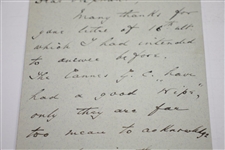 Many thanks for
your letter of 16th ult.
which I had intended
to answer before.
The Cannes G. C. have
had a good
only they are far
too mean to acknowledge